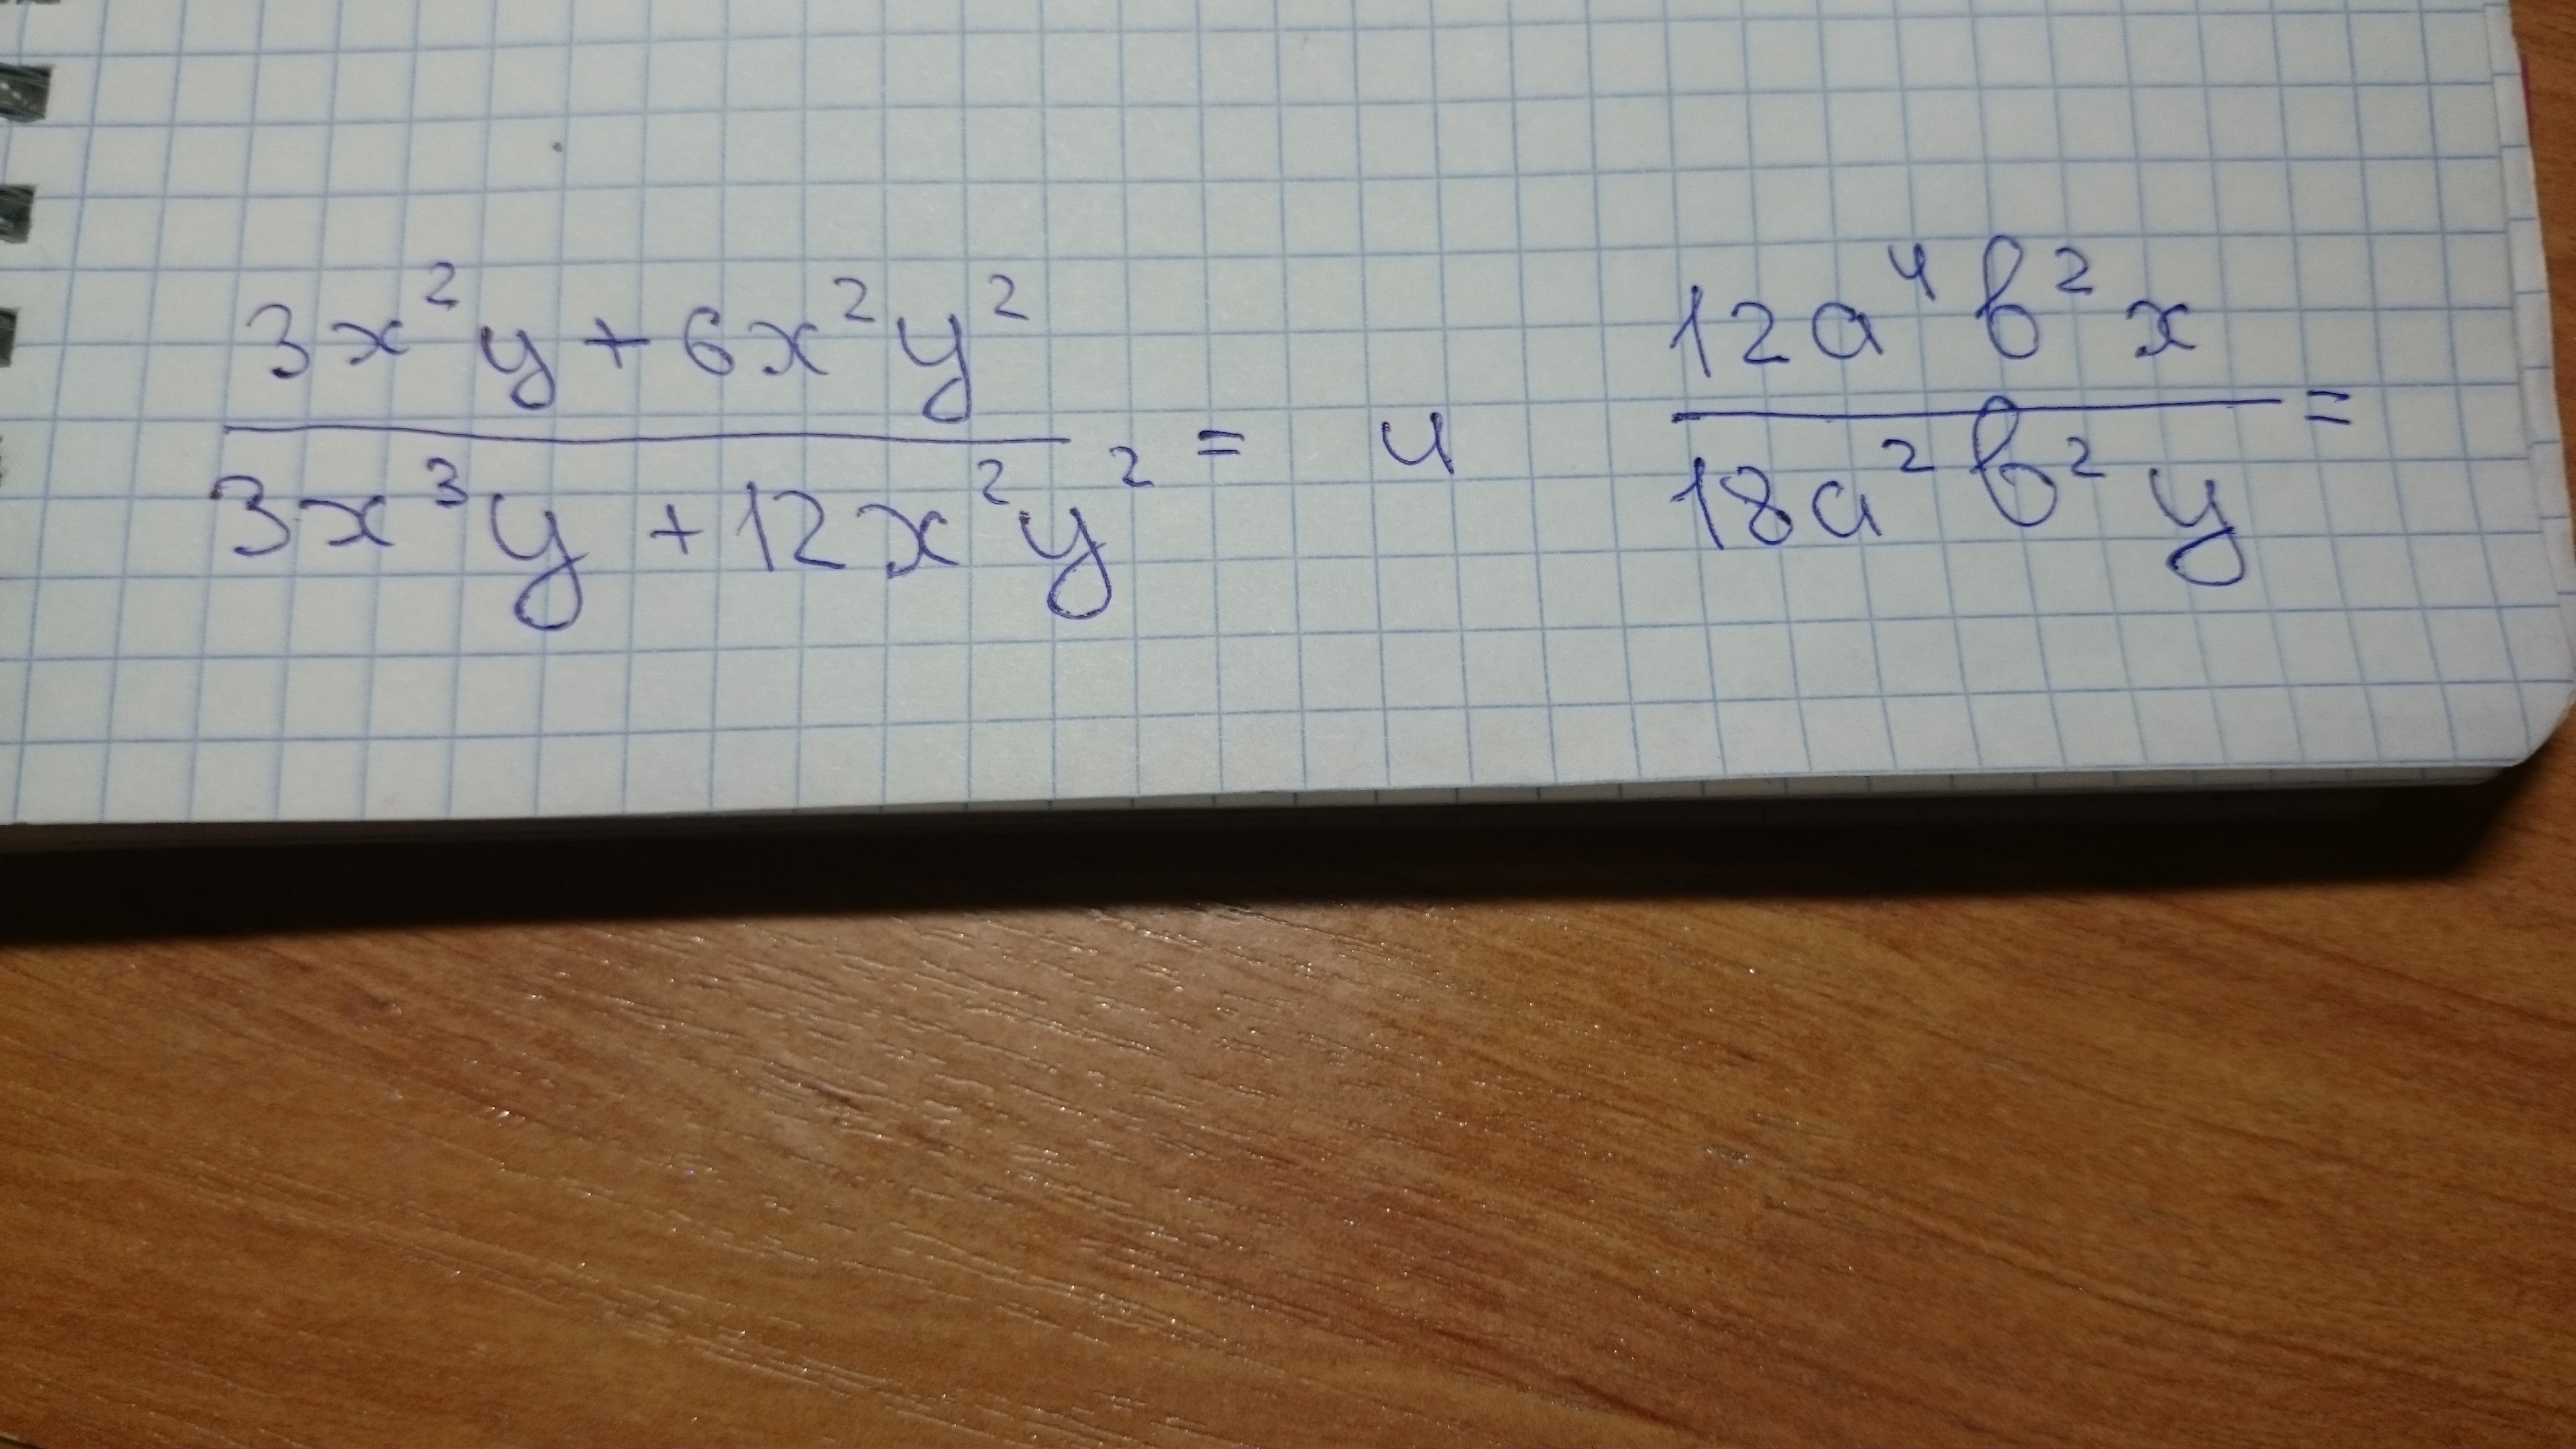 (3x²y + 6x²y²)/(3x³y + 12x²y²) = и (12a⁴b²x)/(18a²b²y) =